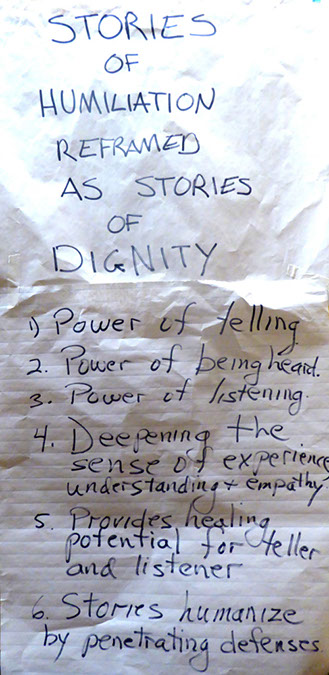 STORIES
OF
HUMILIATION
REFRAMED
AS STORIES
OF
DIGNITY
1) Power of telling
2. Power of being heard.
3. Power of listening.
4. Deepening the
sense of experience
understanding + empathy
5. Provides healing
potential for teller
and listener
6. Stories humanize
by penetrating defenses